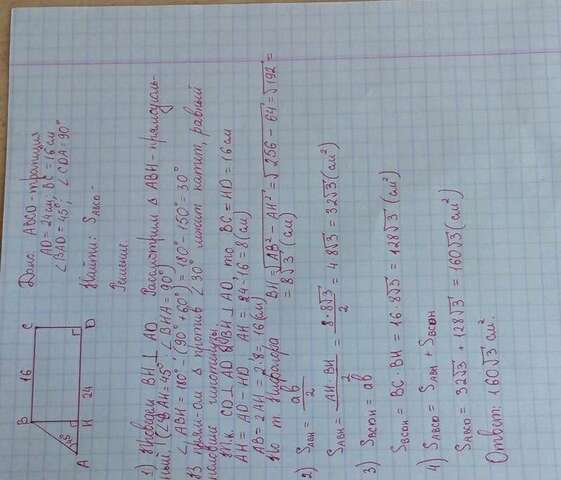 B
16
C
45°
A
H
24
D
Дано: ABCD - трапеция
AD = 24 см, BC = 16 см
∠BAD = 45°, ∠CDA = 90°
Найти: S ABCD -
Решение
1) Проведем BH ⊥ AD Рассмотрим Δ ABH - прямоуголь-
ный (∠BAH = 45°, ∠BHA = 90°)
∠ABH = 180° - (90° + 60°) = 180° - 150° = 30°
В прям-ом Δ против ∠30° лежит катет, равный
половине гипотенузы.
Т.к. CD ⊥ AD, BH ⊥ AD, то BC = HD = 16 см
AH = AD - HD AH = 24 - 16 = 8 (см)
AB = 2AH = 2·8 = 16 (см)
По т. Пифагора BH = √AB² - AH² = √256 - 64 = √192 =
= 8√3 (см)
2) S ABH = ab/2
S ABH = AH·BH/2 = 8·8√3/2 = 4·8√3 = 32√3 (см²)
3) S BCDH = ab
S BCDH = BC·BH = 16·8√3 = 128√3 (см²)
4) S ABCD = S ABH + S BCDH
S ABCD = 32√3 + 128√3 = 160√3 (см²)
Ответ: 160√3 см².